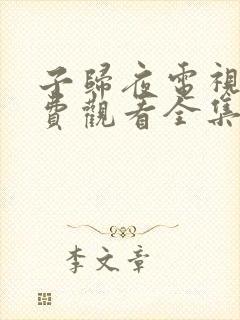 子歸夜電視
費觀看全集
李文章